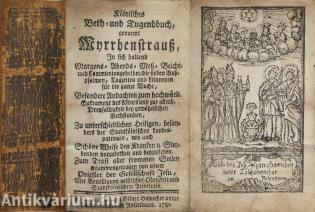 Kölnisches
Beth- und Tugendbuch,
genannt
Myrrhenstrauß,
In sich haltend
Morgens- Abends- Meß- Beicht-
und Communiongebether, die sieben Buß-
psalmen, Tagzeiten und Litaneyen
für die ganze Woche,
Besondere Andachten zum hochwürd.
Sakrament des Altars und zur allerh.
Dreyfaltigkeit bey gewöhnlichen
Bethstunden,
Zu unterschiedlichen Heiligen, beson-
ders der Stadtkölnischen Landes-
patronen, wie auch
Schöne Weise den Kranken u. Ster-
benden vorzubethen und beyzustehen.
Zum Trost aller frommen Seelen
zusammengetragen von einem
Priester der Gesellschaft Jesu,
Mit Bewilligung geistlicher Obrigkeit und
1780
Antikvarium.hu